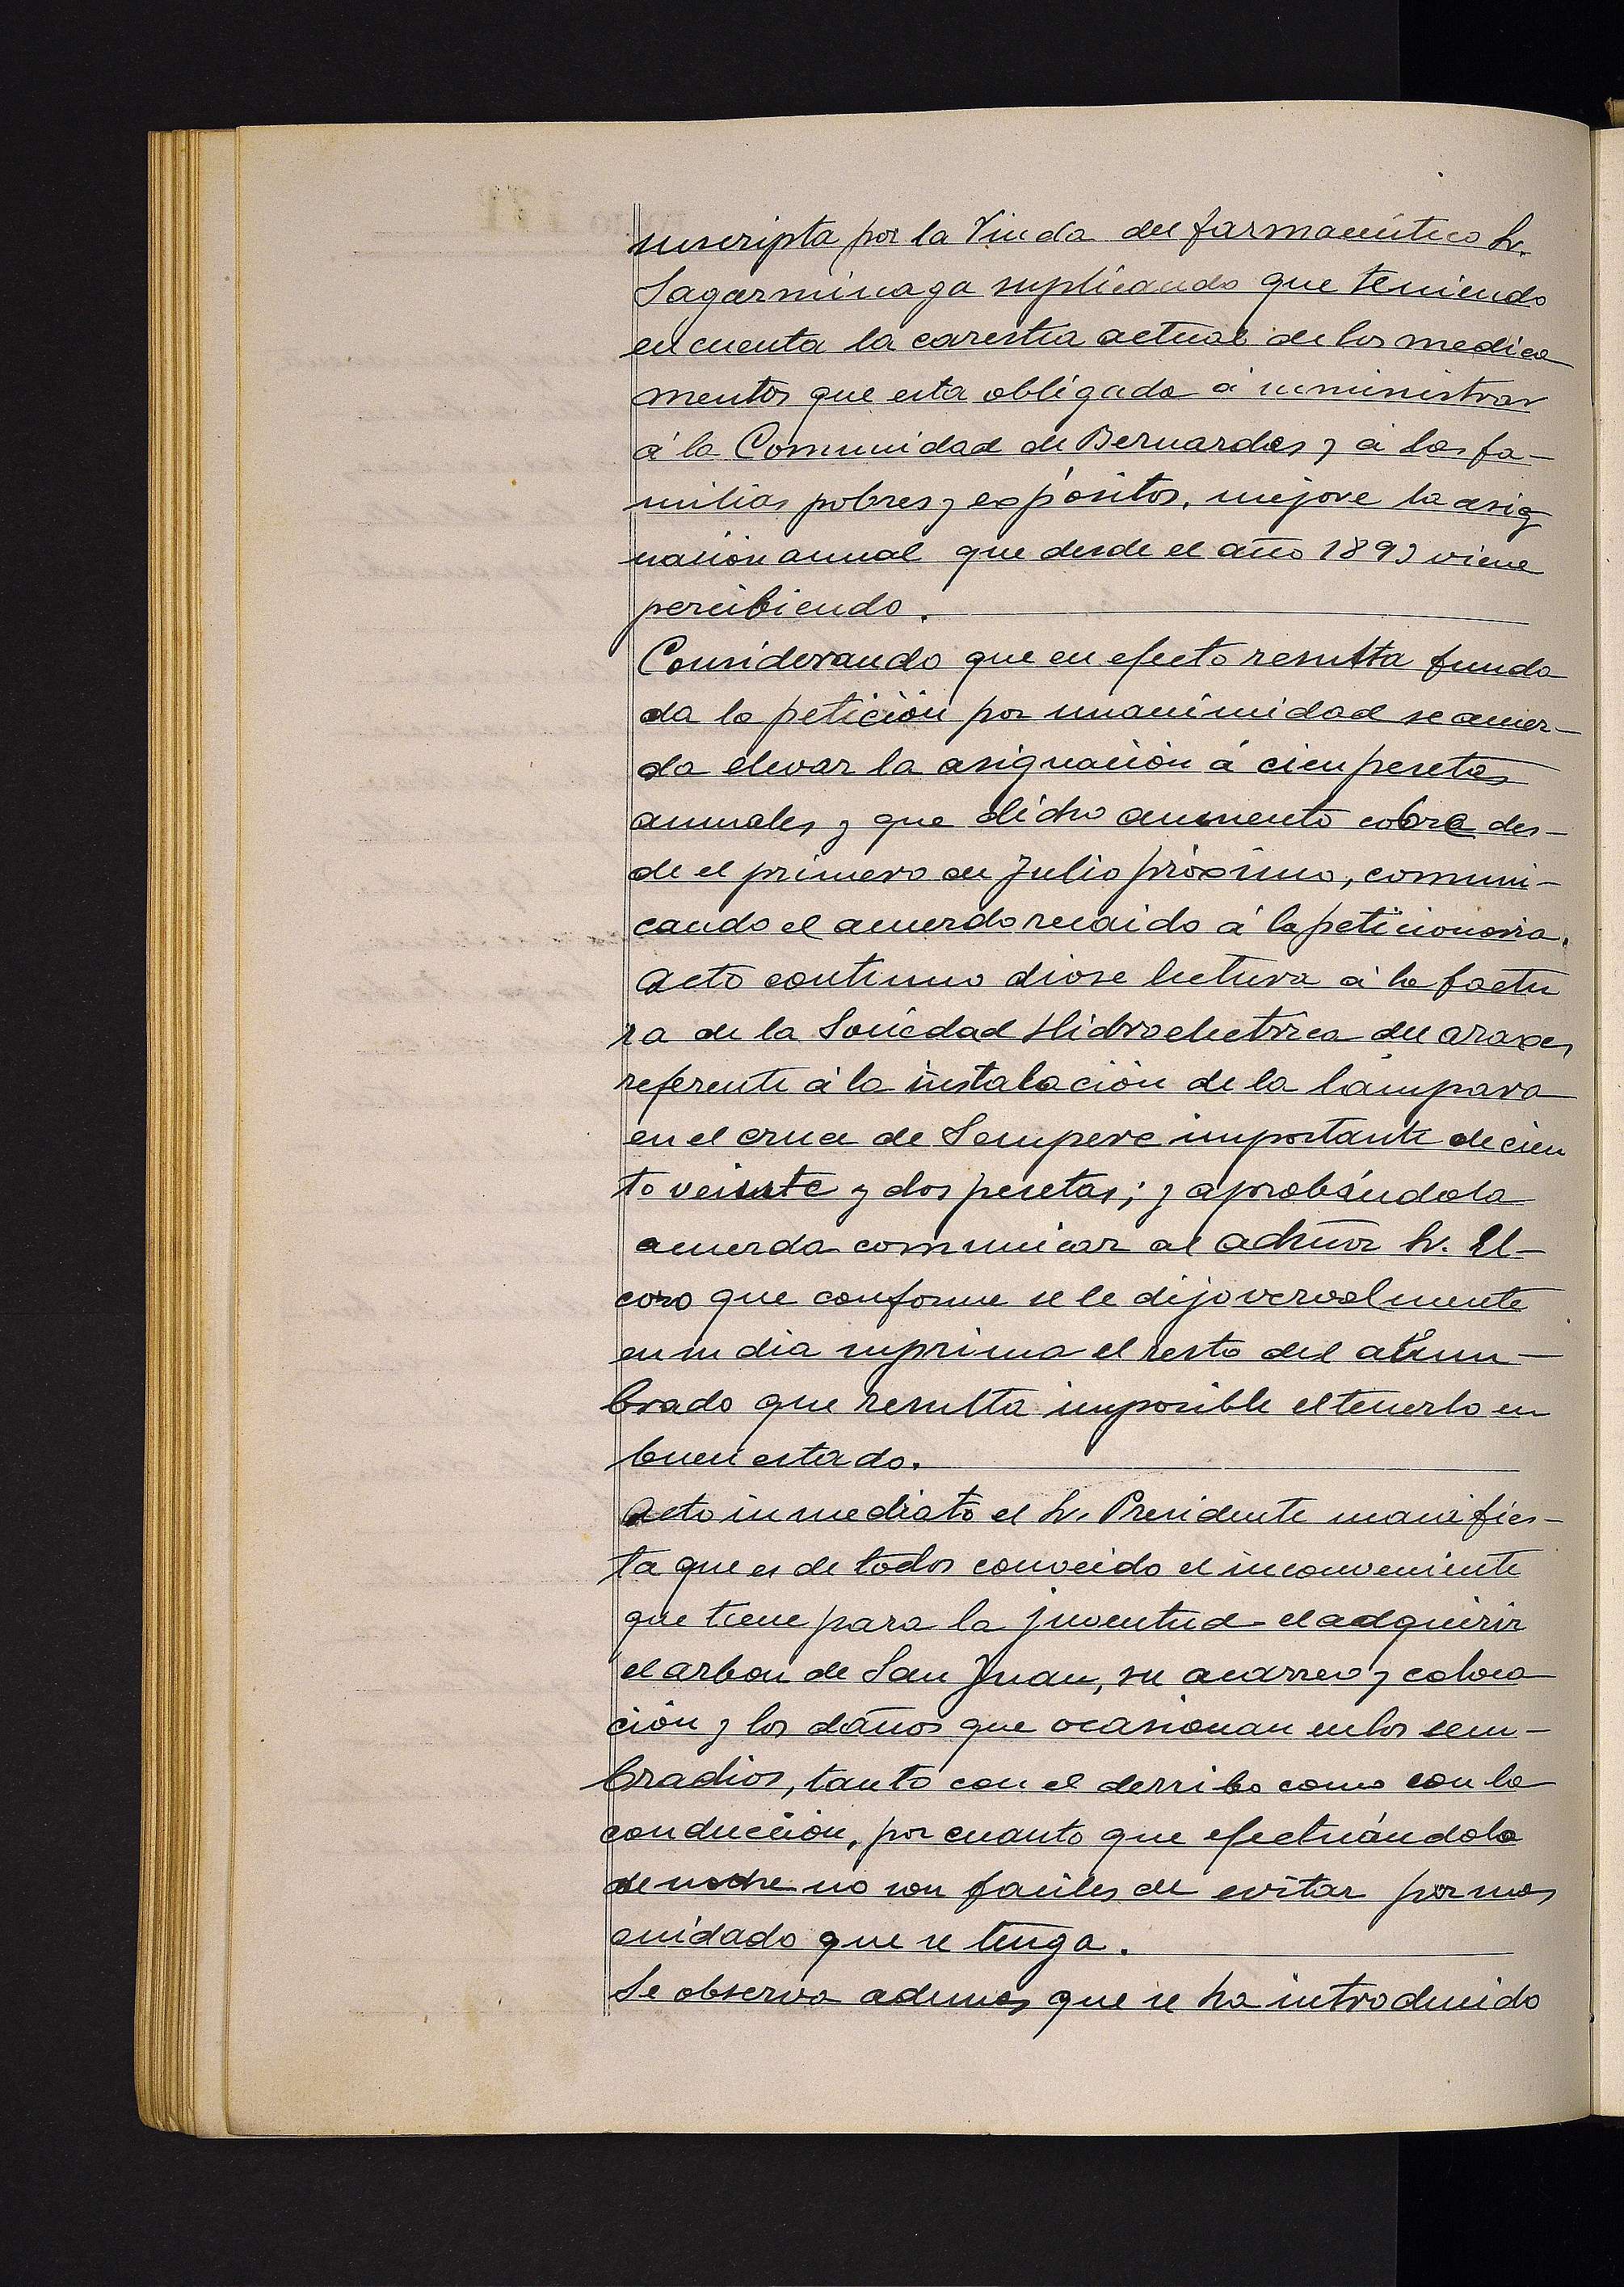 suscripta por la Viuda del farmaceútico Sr.
Sagarminaga suplicando que teniendo
en cuenta la carestia actual de los medica
mentos que esta obligada á suministrar
á la Comunidad de Bernardas y á las fa-
milias pobres y expósitos, mejore la asig
nación anual que desde el año 1899 viene
percibiendo.
Considerando que en efecto resulta funda
da la petición por unanimidad se acuer-
da elevar la asignación á cien pesetas
anuales y que dicho aumento cobre des-
de el primero de Julio próximo, comuni-
cando el acuerdo recaido á la peticionaria.
Acto continuo diose lectura á la factu
ra de la Sociedad Hidroelectrica del Araxes
referente á la instalación de la lámpara
en el cruce de Sempere importante de cien
to veinte y dos pesetas; y aprobándola
acuerda comunicar al admor Sr. El-
coro que conforme se le dijo vervalmente
en su dia suprima el resto del alum-
brado que resulta imposible el tenerlo en
buen estado.
Acto inmediato el Sr. Presidente manifies-
ta que es de todos conocido el inconveniente
que tiene para la juventud el adquirir
el arbon de San Juan, su acarreo y coloca
ción y los daños que ocasionan en los sem-
bradios, tanto con el derribo como con la
conducción, por cuanto que efectuándola
de noche no son faciles de evitar por mas
cuidado que se tenga.
Se observa ademas que se ha introducido